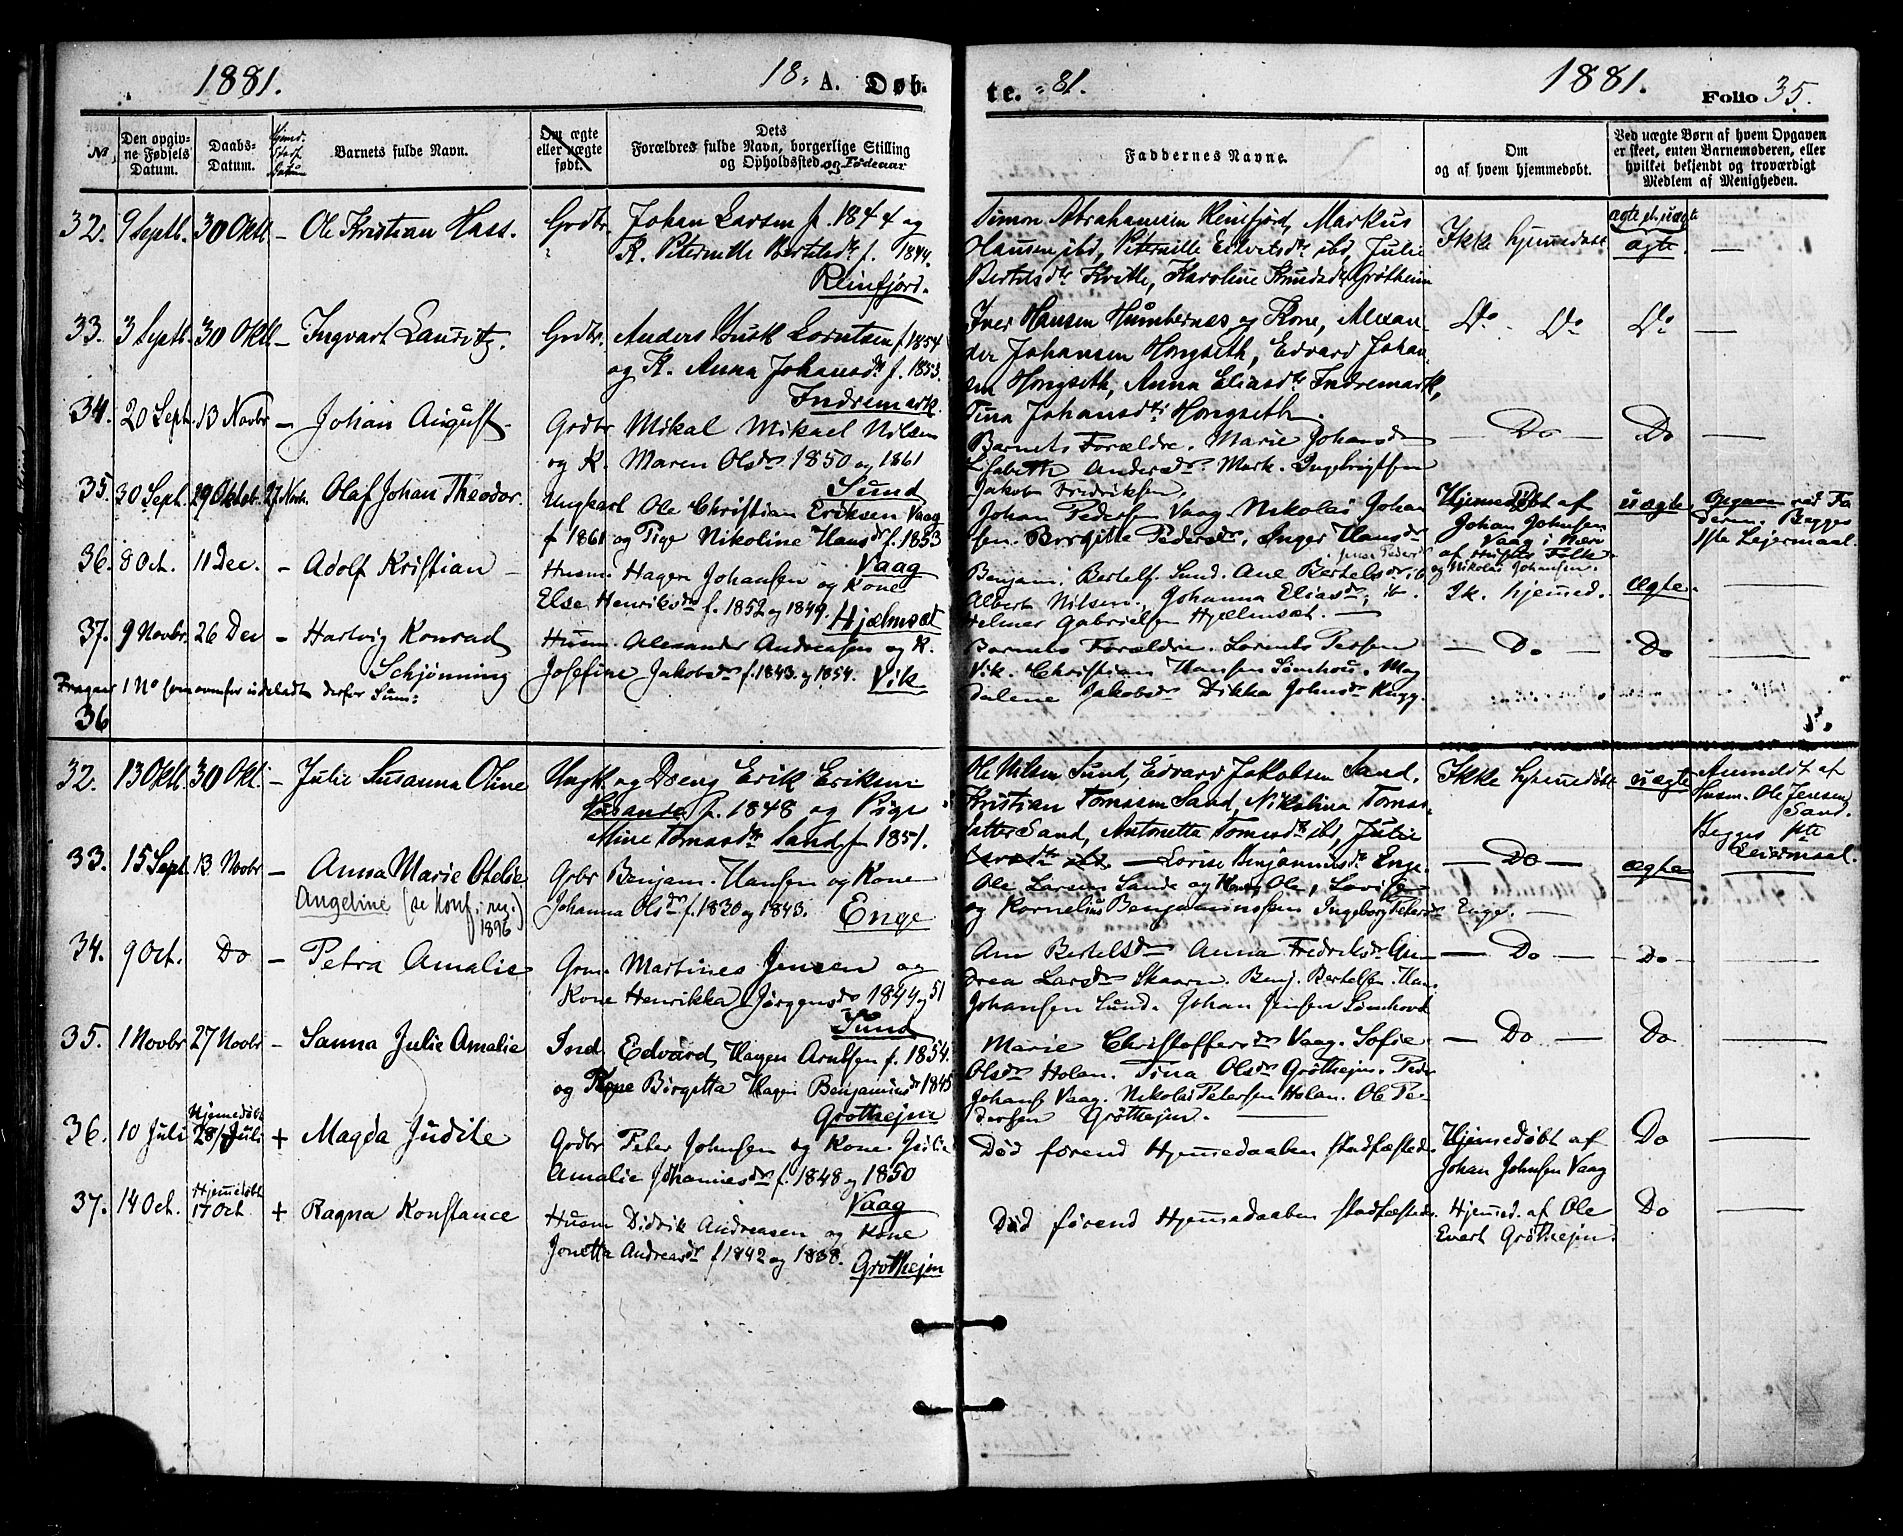 1881.
18. A. Døb-
te. "81.
1881.
Folio 35.
No.
Den opgiv-
ne Fødsels
Datum.
Daabs-
Datum.
Hjemd.
Stadf.
Datum
Barnets fulde Navn.
Om ægte
eller uægte
født.
Dets
Forældres fulde Navn, borgerlige Stilling
og Opholdssted og Fødeaar
Faddernes Navne.
Om
og af hvem hjemmedøbt.
Ved uægte Børn af hvem Opgaven
er skeet, enten Barnemoderen, eller
hvilket bekjendt og troværdigt
Medlem af Menigheden.
32. 9 Septb. 30 Oktb. – Ole Kristian Hass. Grdbr. Johan Larsen f. 1844 og
K. Peternille Bertelsdtr f. 1844.
Reinfjord.
Simon Abrahamsen Reinfjord, Markus
Hansen ibd, Peternille Edvetsdtr ibd, Julie
Bertelsdtr Hvitte, Karoline Knudsdtr Grøtheim
Ikke hjemmedøbt
ægte el. uægte
ægte. —
33. 3 Septb. 30 Oktb. – Ingvart Lauritz. Grdbr. Anders Buck Lorntsen f. 1854
og K. Anna Johansdtr f. 1853.
Indremark.
Iver Hansen Humbernæs og Kone, Alexan-
der Johansen Hongseth, Edvard Johan-
sen Hongseth, Anna Eliasdtr Indremark,
Tina Johansdtr Hongseth.
Do - Do Do —
34. 20 Sept. 13 Novbr – Johan August. Grdbr Mikal Mikael Nilsen
og K. Maren Olsdr 1850 og 1861
Sund
Barnets Forældre. Marie Johansdr
Elisabeth Andersdr. Mark. Ingebrigtsen
Jakob Fredriksen.
— Do — Do —
35. 30 Sept. 29 Oktob. 27 Nov. Olaf Johan Theodor. Ungkarl Ole Christian Eriksen Vaag
f 1861 og Pige Nikoline Hansdr f. 1853
Vaag
Johan Pedersen Vaag. Nikolai Johan
sen. Birgitte Pedersdr, Inger Hansdr
Hjemmedøbt af
Johan Johnsen
Vaag i Nær
og Nikolai Johansen.
uægte
Opgaven ved Fa
deren. Begges
1ste Leiermaal.
36. 8 Oct. 11 Dec. – Adolf Kristian – Husm. Hagen Johansen og Kone
Else Henriksdr f. 1852 og 1849. Hjælmsæt
Benjam. Bertels. Sund. Ane Bertelsdr ib
Albert Nilsen, Johanna Eliasdr, ib.
Helmer Gabrielsen Hjælmsæt. —
Ik. hjemmed. ægte. —
37. 9 Novbr. 26 Dec – Hartvig Konrad
Schjønning
Husm. Alexander Andreasen og K.
Josefine Jakobsdr f. 1843 og 1854. Vik
Barnets Forældre. Lorents Persen
Vik. Christian Hansen Sømhov. Mag
dalene Jakobsdr Dikka Johnsdr
— Do — Do —
1 No som ovenfor udeladt derfor Sum:
36
32. 13 Oktb. 30 Okt. – Julie Susanna Oline Ungk. og Dreng Erik Eriksen
f. 1848 og Pige
Mine Tomasdtr Sand f. 1851.
Ole Nilsen Sund, Edvard Jakobsen Sand,
Kristian Tomassen Sand, Nikolina Tomas-
datter Sand, Antonetta Tomasdtr ibd, Julie
Ikke hjemmedøbt uægte Anmeldt af
Husm. Ole Jensen
Sand.
Begges 1ste
Leiermaal.
33. 15 Sept. 13 Novbr – Anna Marie Otelie
Angeline (se konf. reg.
1896)
Grbr Benjam. Hansen og Kone
Johanna Olsdr f. 1830 og 1843. Enge
— Lovise Benjaminsdr Enge.
Ole Larsen Sande og Kone, Ole, Lovise
og Kornelius Benjaminssen Ingeborg Petersdr Enge. —
— Do — ægte —
34. 9 Oct. Do – Petra Amalie Grm. Martines Jensen og
Kone Henrikka Jørgensdr 1844 og 51
Sund
Ane Bertelsdr Anna Fredriksdr An-
drea Larsdr Skaaren. Benj. Bertelsen. Han.
Johansen Sund. Johan Jensen Sømhovd
— Do — Do —
35. 1 Novbr 27 Novbr – Sanna Julie Amalie Ind. Edvard Hagen Arntsen f. 1854.
og Kone Birgitta Hagen Benjaminsdr 1845
Grøthejm
Marie Christoffersdr Vaag. Sofie
Olsdr Holan. Tina Olsdr Grøthejm. Peder
Johans Vaag. Nikolai Petersen Holan. Ole Pe-
dersen Grøthejm. —
— Do — Do —
36. 10 Juli Hjemmedøbt
28/7 Juli + Magda Judite Grdbr Peter Johnsen og Kone Julie
Amalie Johannesdr f. 1848 og 1850
Vaag
Død førend Hjemmedaaben stadfæstedes
Hjemmedøbt af
Johan Johnsen Vaag
Do —
37. 14 Oct. Hjemmedøbt
17 Oct. + Ragna Konstance Husm Didrik Andreasen og Kone
Jonetta Andreasdr f 1842 og 1838. Grøthejm
Død førend Hjemmedaaben stadfæstedes
Hjemmed. af Ole
Evert Grøthejm.
Do —